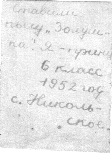 Ставили
пьесу „Золуш-
ка". Я -
6 класс
1952 год
с. Николь-
ское.